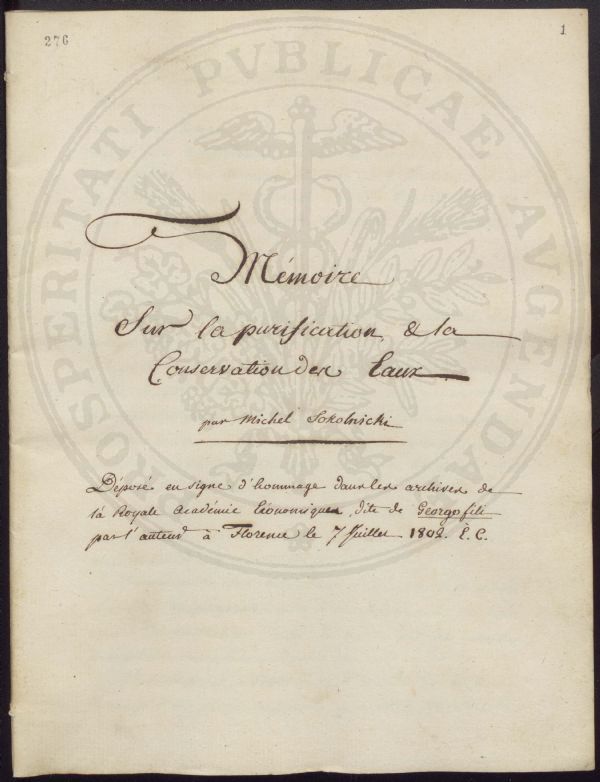 276
1
PROSPERITATI PVBLICAE AVGENDAE
Mémoire
Sur la purification & la
Conservation des Eaux
par Michel Sokolnicki
Déposé en signe d'hommage dans les archives de
la Royale Académie Economique, dite de Georgofili
par l'auteur à Florence le 7 Juillet 1802. E. C.